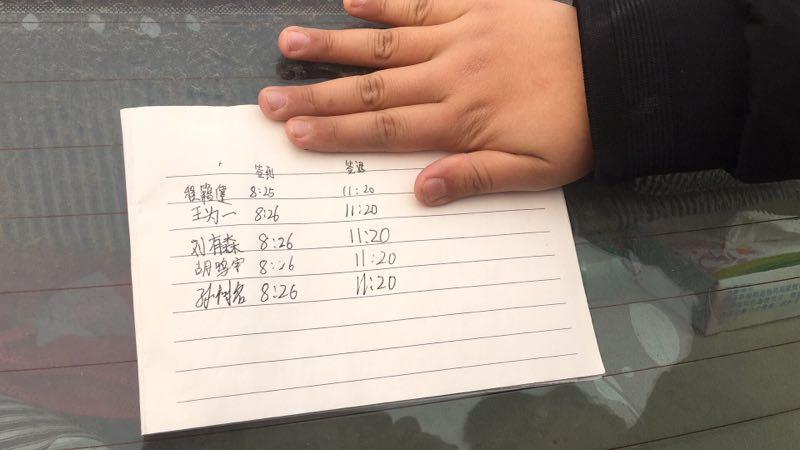 签到 签退
程颢健 8:25 11:20
王为一 8:26 11:20
刘有森 8:26 11:20
胡鸣宇 8:26 11:20
孙树名 8:26 11:20